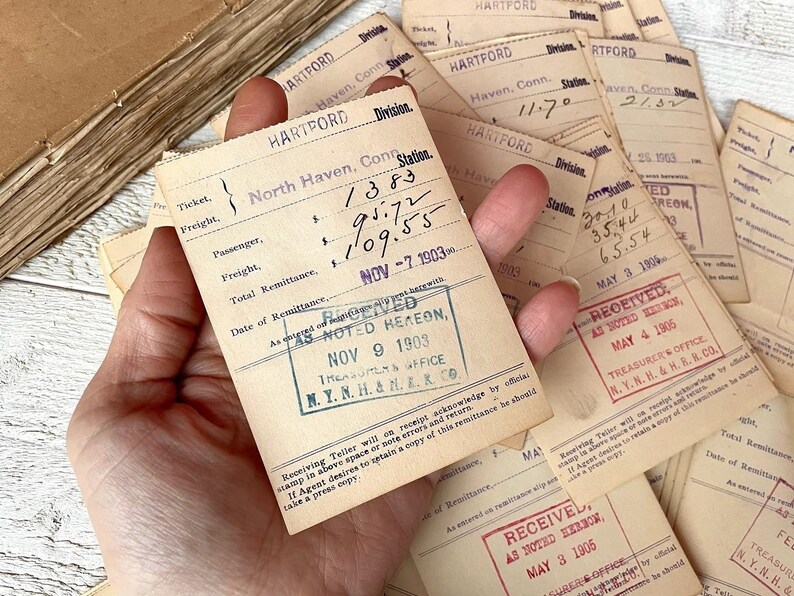 HARTFORD Division.
Ticket, } North Haven, Conn. Station.
Freight,
Passenger, $ 13 83
Freight, $ 95.72
Total Remittance, $ 109.55
Date of Remittance, NOV -7 1903 190
As entered on remittance slip sent herewith.
RECEIVED
AS NOTED HEREON,
NOV 9 1903
TREASURER'S OFFICE
N.Y.N.H. & H.R.R. CO.
Receiving Teller will on receipt acknowledge by official
stamp in above space or note errors and return.
If Agent desires to retain a copy of this remittance he should
take a press copy.
HARTFORD Division.
HARTFORD
Ticket,
Freight,
HARTFORD Division.
Haven, Conn. Station.
11.70
Division.
Haven, Conn. Station.
21.32
1903
HARTFORD Division.
Haven, Conn.
Station.
1903
Station.
35.44
65.54
MAY 3 1905
RECEIVED,
AS NOTED HEREON,
MAY 4 1905
TREASURER'S OFFICE.
N.Y.N.H. & H.R.R. CO.
Receiving Teller will on receipt acknowledge by official
stamp in above space or note errors and return.
If Agent desires to retain a copy of this remittance he should
take a press copy.
Ticket,
Freight,
Passenger,
Freight,
Total Remittance,
Date of Remittance,
As entered on
Total Remittance,
Date of Remittance,
As entered on remittance
Date of Remittance, MAY
As entered on remittance slip sent herewith.
RECEIVED,
AS NOTED HEREON,
MAY 3 1905
TREASURER'S OFFICE.
acknowledge by official
errors and return.
remittance he should